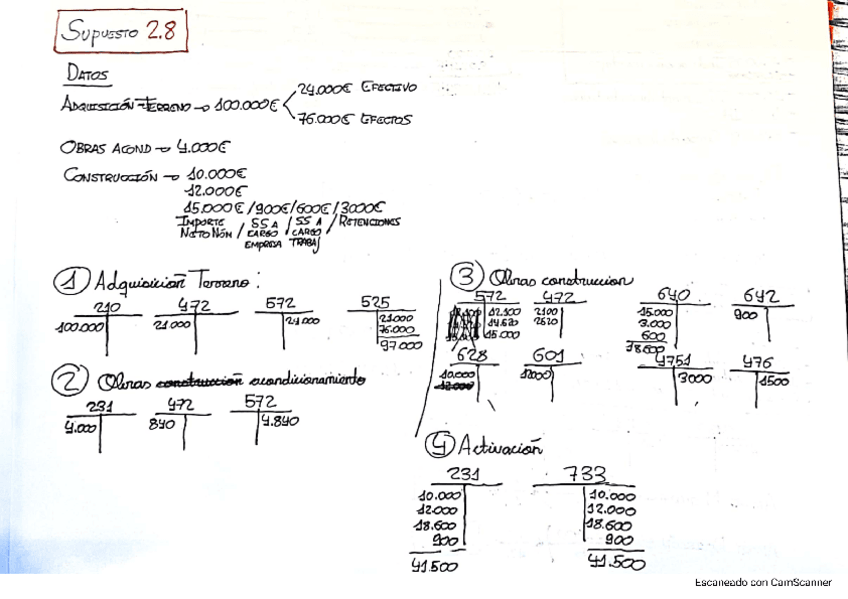 SUPUESTO 2.8
DATOS
ADQUISICIÓN TERRENO → 100.000€
24.000€ EFECTIVO
76.000€ EFECTOS
OBRAS ACOND → 4.000€
CONSTRUCCIÓN → 10.000€
12.000€
15.000€ / 900€ / 600€ / 3000€
IMPORTE NETO NÓM / SS A CARGO EMPRESA / SS A CARGO TRABAJ / RETENCIONES
① Adquisición Terreno:
210 472 572 525
100.000 21.000 24.000 21.000
76.000
97.000
② Obras acondicionamiento
231 472 572
4.000 840 4.840
③ Obras construccion
572 472 640 642
12.100 2100 15.000 900
14.520 2520 3.000
15.000 600
18.600
628 601 4751 476
10.000 12000 3000 1500
④ Activación
231 733
10.000 10.000
12.000 12.000
18.600 18.600
900 900
41.500 41.500
Escaneado con CamScanner